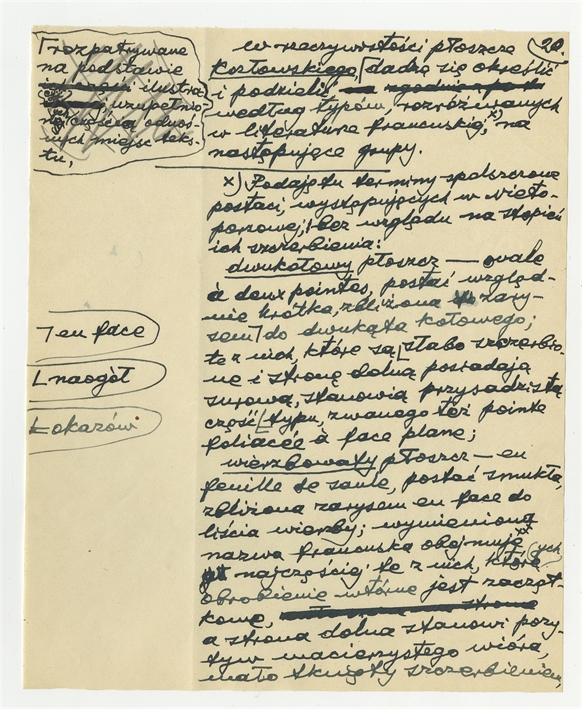 20.
⌈rozpatrywane
na podstawie
ilustra-
uzupełnio-
odnoś-
nych miejsc teks-
tu,
w rzeczywistości płoszcze
Kozłowskiego, ⌈dadzą się określić
i podzielić
według typów, rozróżnianych
w literaturze francuskiej,x) na
następujące grupy.
x) Podaję tu terminy spolszczone
postaci, występujących w
bez względu na stopień
ich szczerbienia:
dwukątowy płoszcz — ovale
à deux pointes, postać względ-
nie krótka, zbliżona zary-
sem ⌉ do dwukąta kołowego;
te z nich, które są ⌊ słabo szczerbio-
ne i stronę dolną posiadają
surową, stanowią przysadzistą
część ⌊ typu, zwanego też pointe
foliacée à face plane;
wierzbowaty płoszcz — en
feuille de saule, postać smukła,
zbliżona zarysem en face do
liścia wierzby; wymieniona
nazwa francuska obejmuje xx)
najczęściej te z nich, których
obrobienie wtórne jest zacząt-
kowe,
a strona dolna stanowi pozy-
tyw macierzystego wióra,
mało tknięty szczerbieniem,
⌉ en face
⌊ naogół
⌊ okazów